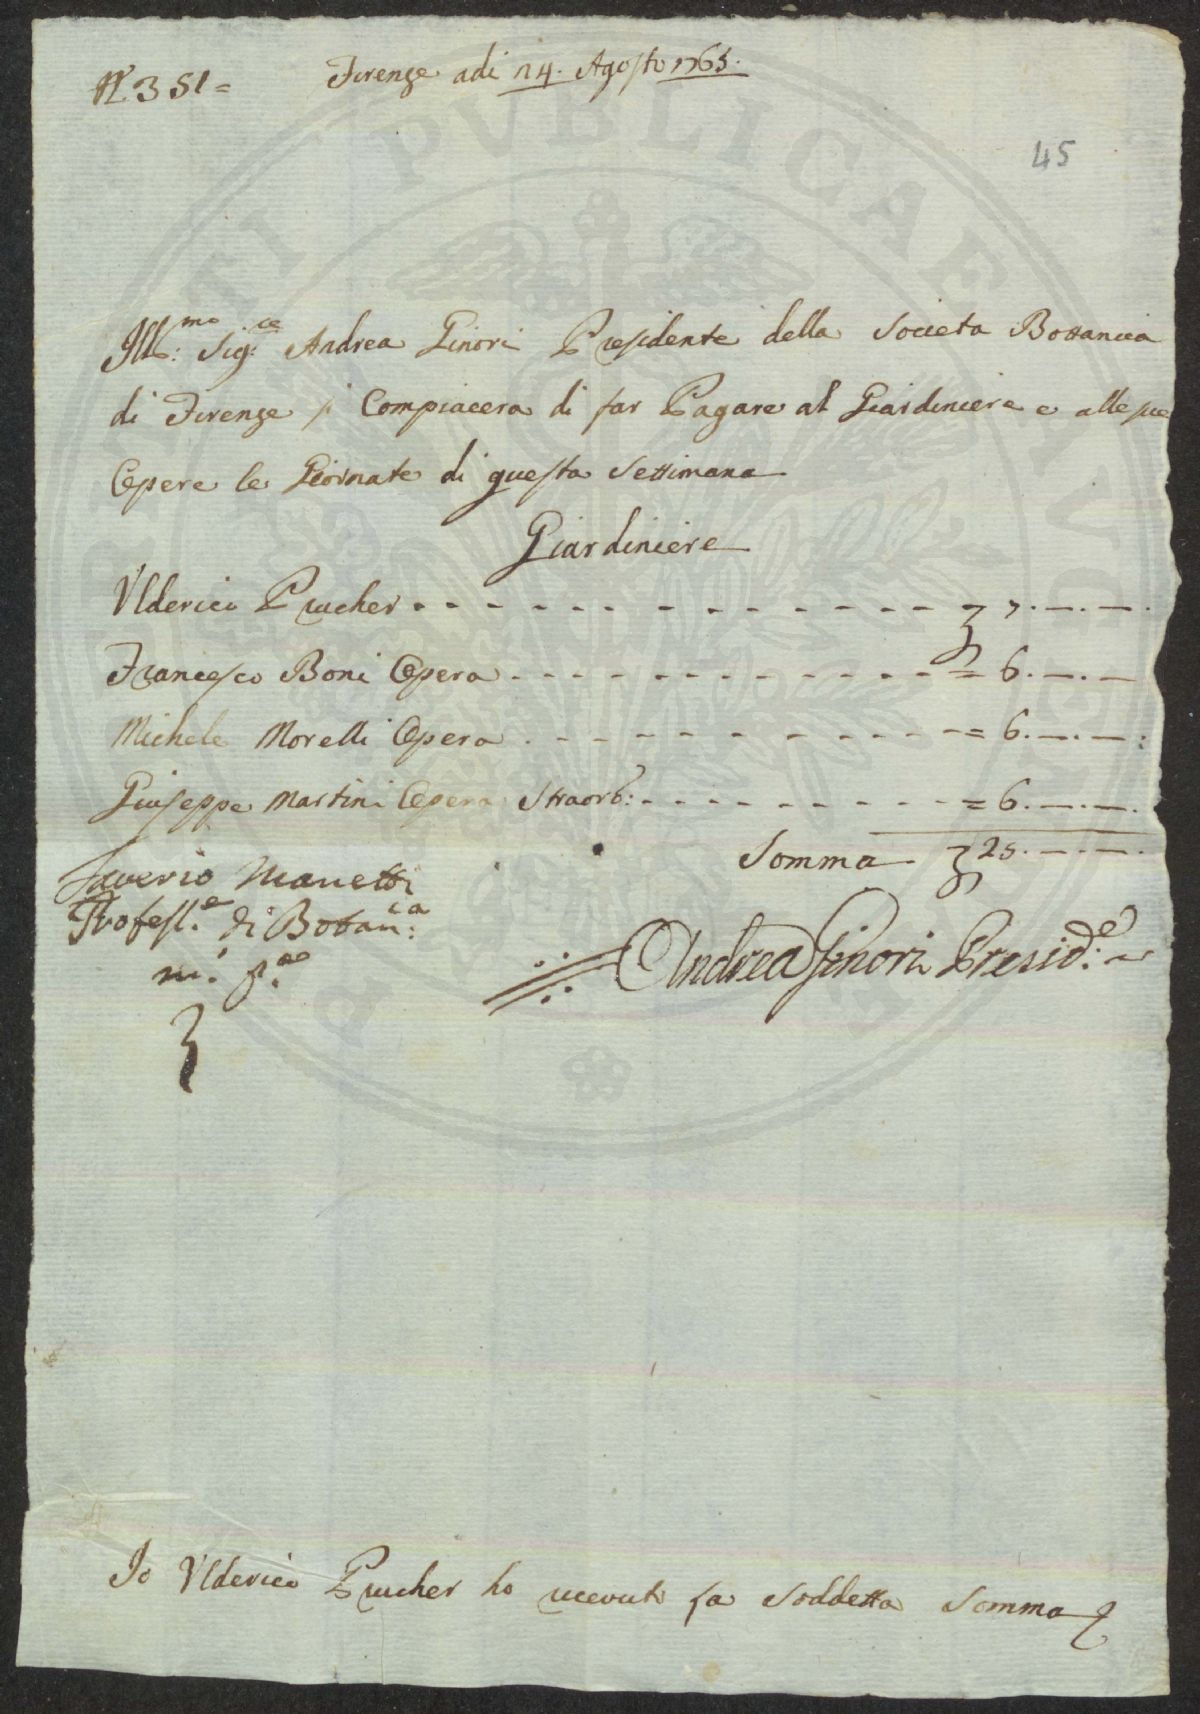 N.° 351 =
Firenze adi 24. Agosto 1765.
45
Ill:mo Sig:re Andrea Ginori Presidente della Societa Bottanica
di Firenze si Compiacera di far Pagare al Giardiniere e alle sue
Opere le Giornate di questa Settimana
Giardiniere
Ulderico Prucher - - - - - - - - - - - - - £ 7. —. —.
Francesco Boni Opera - - - - - - - - - - - = 6. —. —
Michele Morelli Opera - - - - - - - - - - - = 6. —. —:
Giuseppe Martini Opera Straord: - - - - - - - - = 6. —. —.
Somma £ 25. —. —.
Saverio Manetti
Profess.e di Botan:ca
m.° p.a
Andrea Ginori Presid:e
Io Ulderico Prucher ho ricevuto la Soddetta Somma